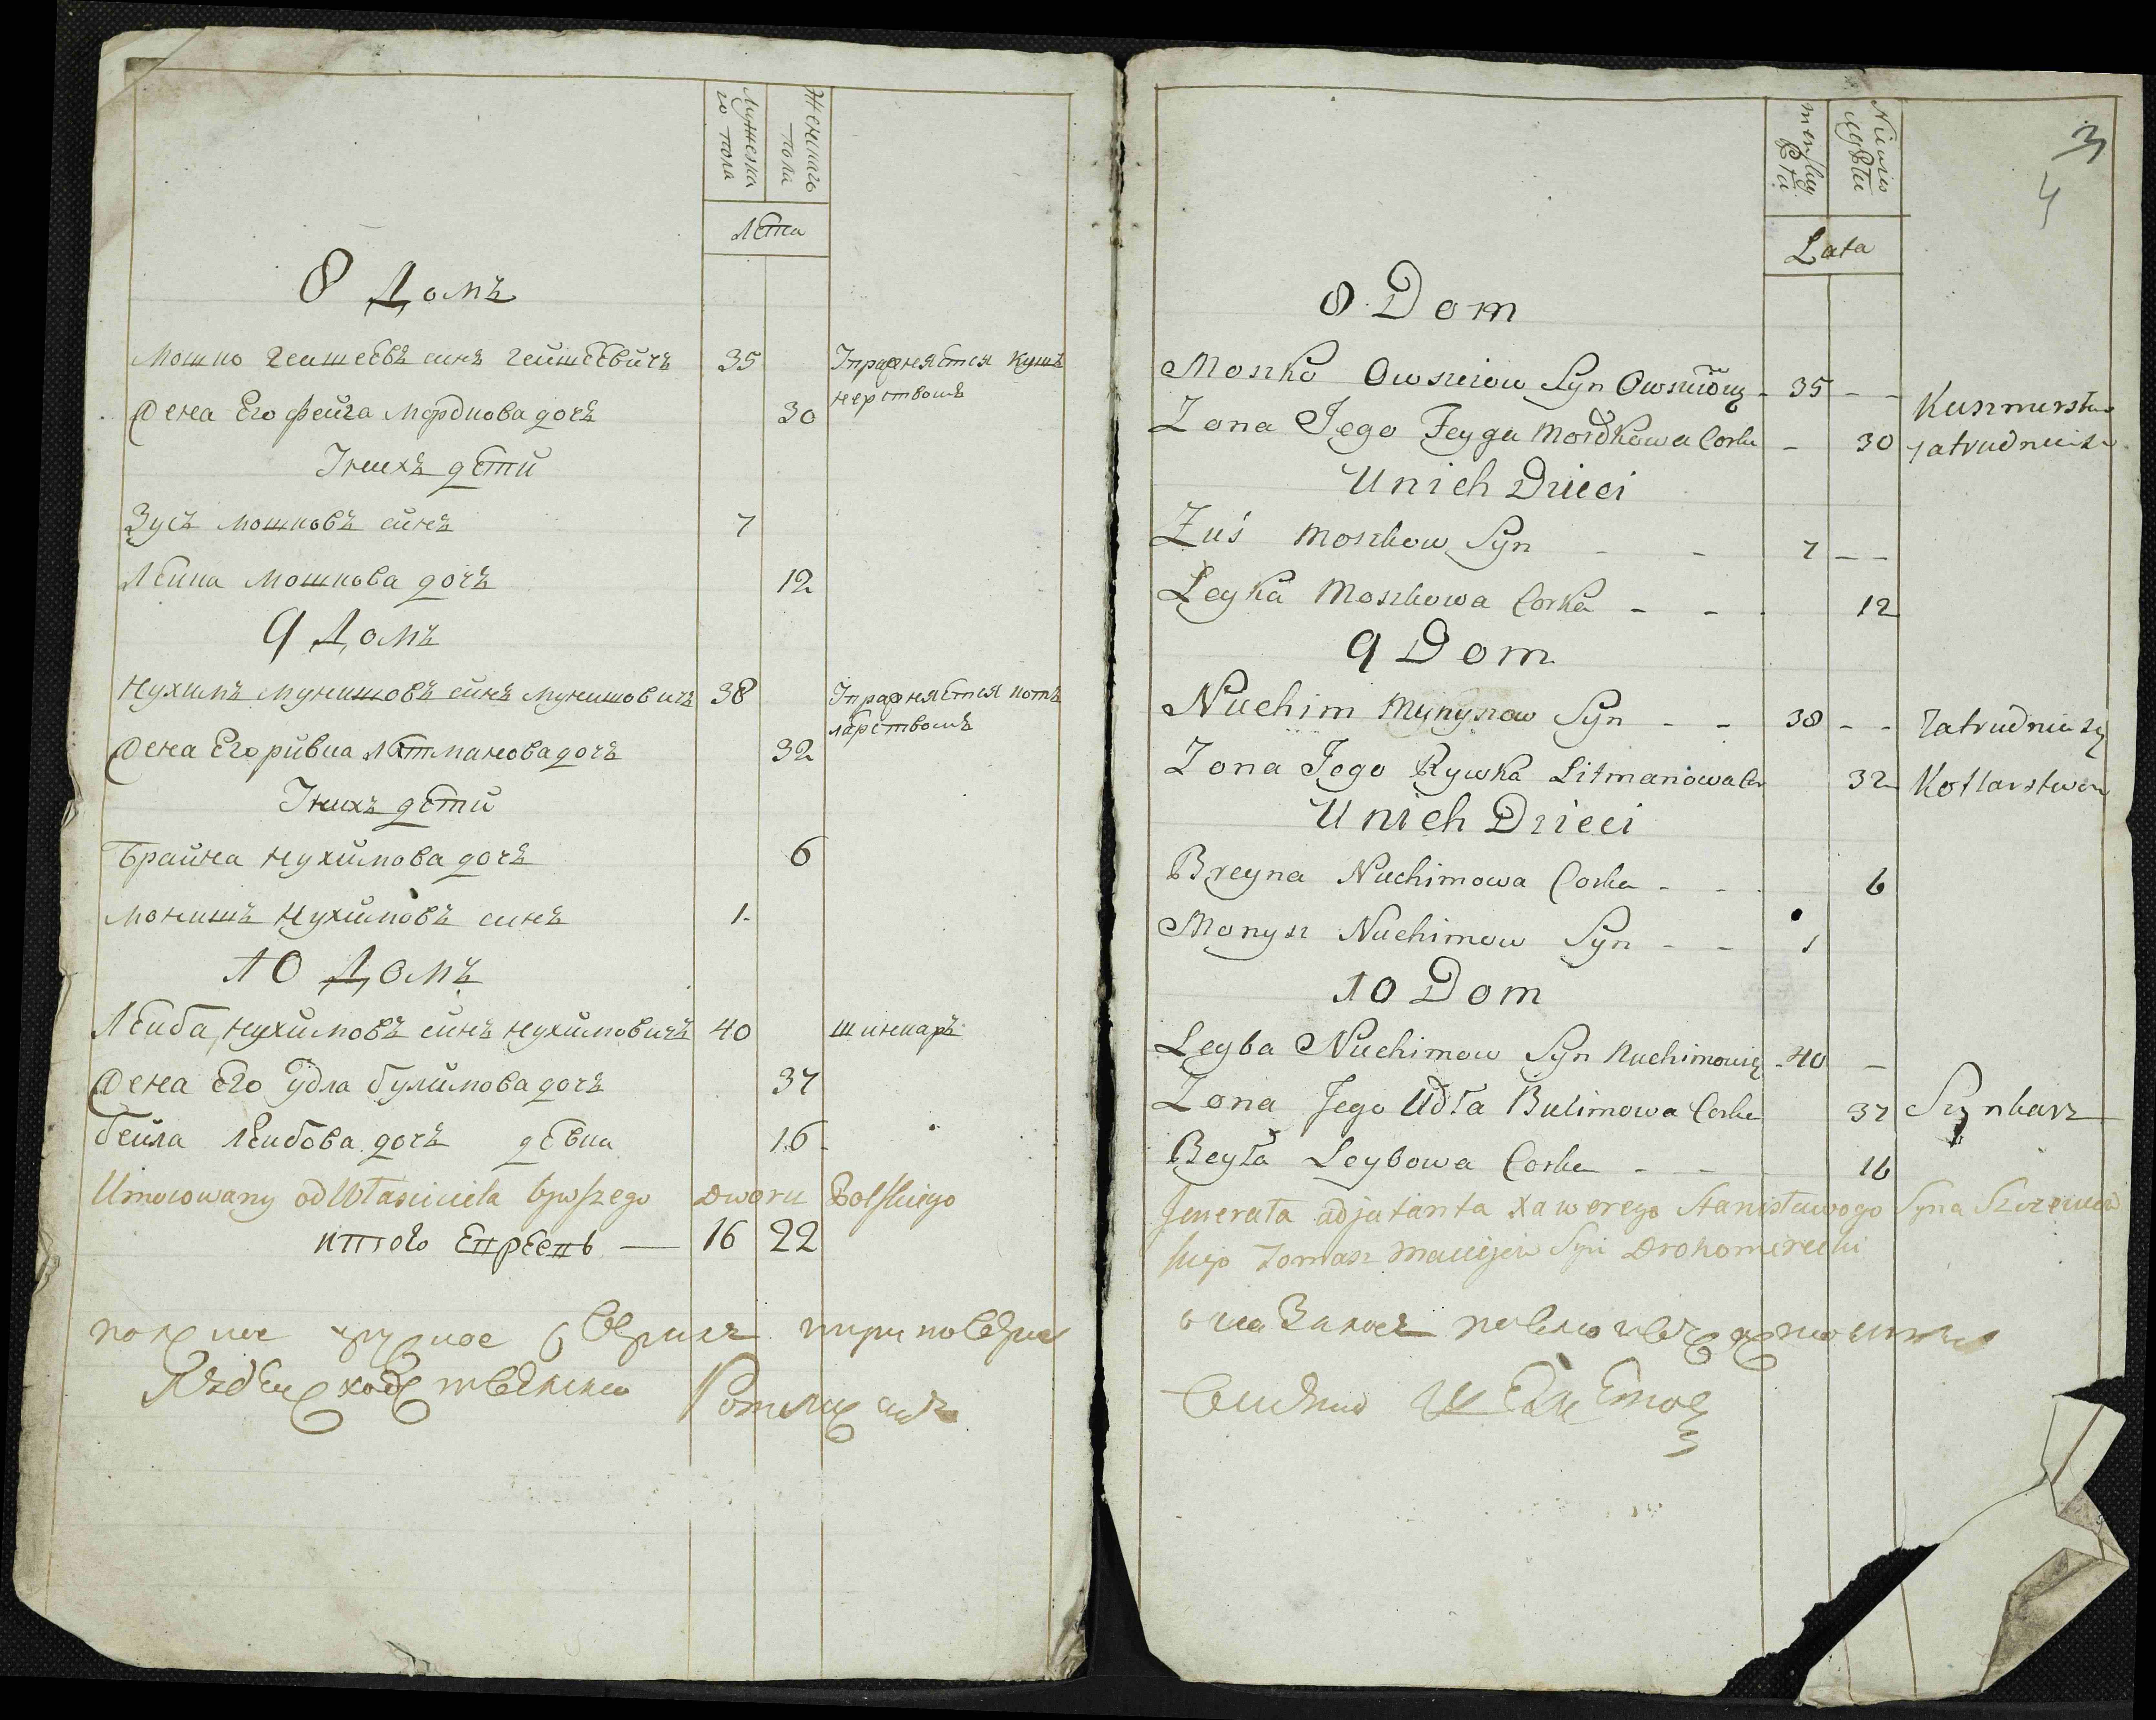 Мужеска
го пола
Женскаго
пола
лѣта
8 Домъ
Мошко Геишеевъ синъ Геишѣевичъ 35 Упражняется кушъ
нерствомъ
Жена Его Фейга Мордкова дочъ 30
Унихъ дѣти
Зусъ Мошковъ синъ 7
Лѣика Мошкова дочъ 12
9 Домъ
Нухимъ Мунишовъ синъ Мунишовичъ 38 Упражняется котъ
лярствомъ
Жена Его Ривка Литманова дочъ 32
Унихъ дѣти
Брайна Нухимова дочъ 6
Монишъ Нухимовъ синъ 1
10 Домъ
Лѣиба Нухимовъ синъ Нухимовичъ 40 шинкаръ
Жена Его Удла Булимова дочъ 37
Бейла Лѣибова дочъ дѣвка 16
Umocowany od Własciciela bywszego Dworu Polskiego
итого Евреевъ — 16 22
при поверке
3
4
Męskiey
Płci
Niewies
ciey Płci
Lata
8 Dom
Moszko Owsieiow Syn 35 Kusznierstw
Zona Jego Feyga Mordkowa Corka 30 zatrudnia sie
U nich Dzieci
Zuś Moszkow Syn 7
Leyka Moszkowa Corka 12
9 Dom
Nuchim Mynyszow Syn 38 Zatrudnia się
Zona Jego Rywka Litmanowa Cor 32 Kotlarstwem
U nich Dzieci
Breyna Nuchimowa Corka 6
Monysz Nuchimow Syn 1
10 Dom
Leyba Nuchimow Syn Nuchimowicz 40
Zona Jego Udla Bulimowa Corka 37 Szynkarz
Beyła Leybowa Corka 16
Jenerała adjutanta Xawerego Stanisławowego Syna Szczeniow
skiego Tomasz Maciejow Syn Drohomirecki